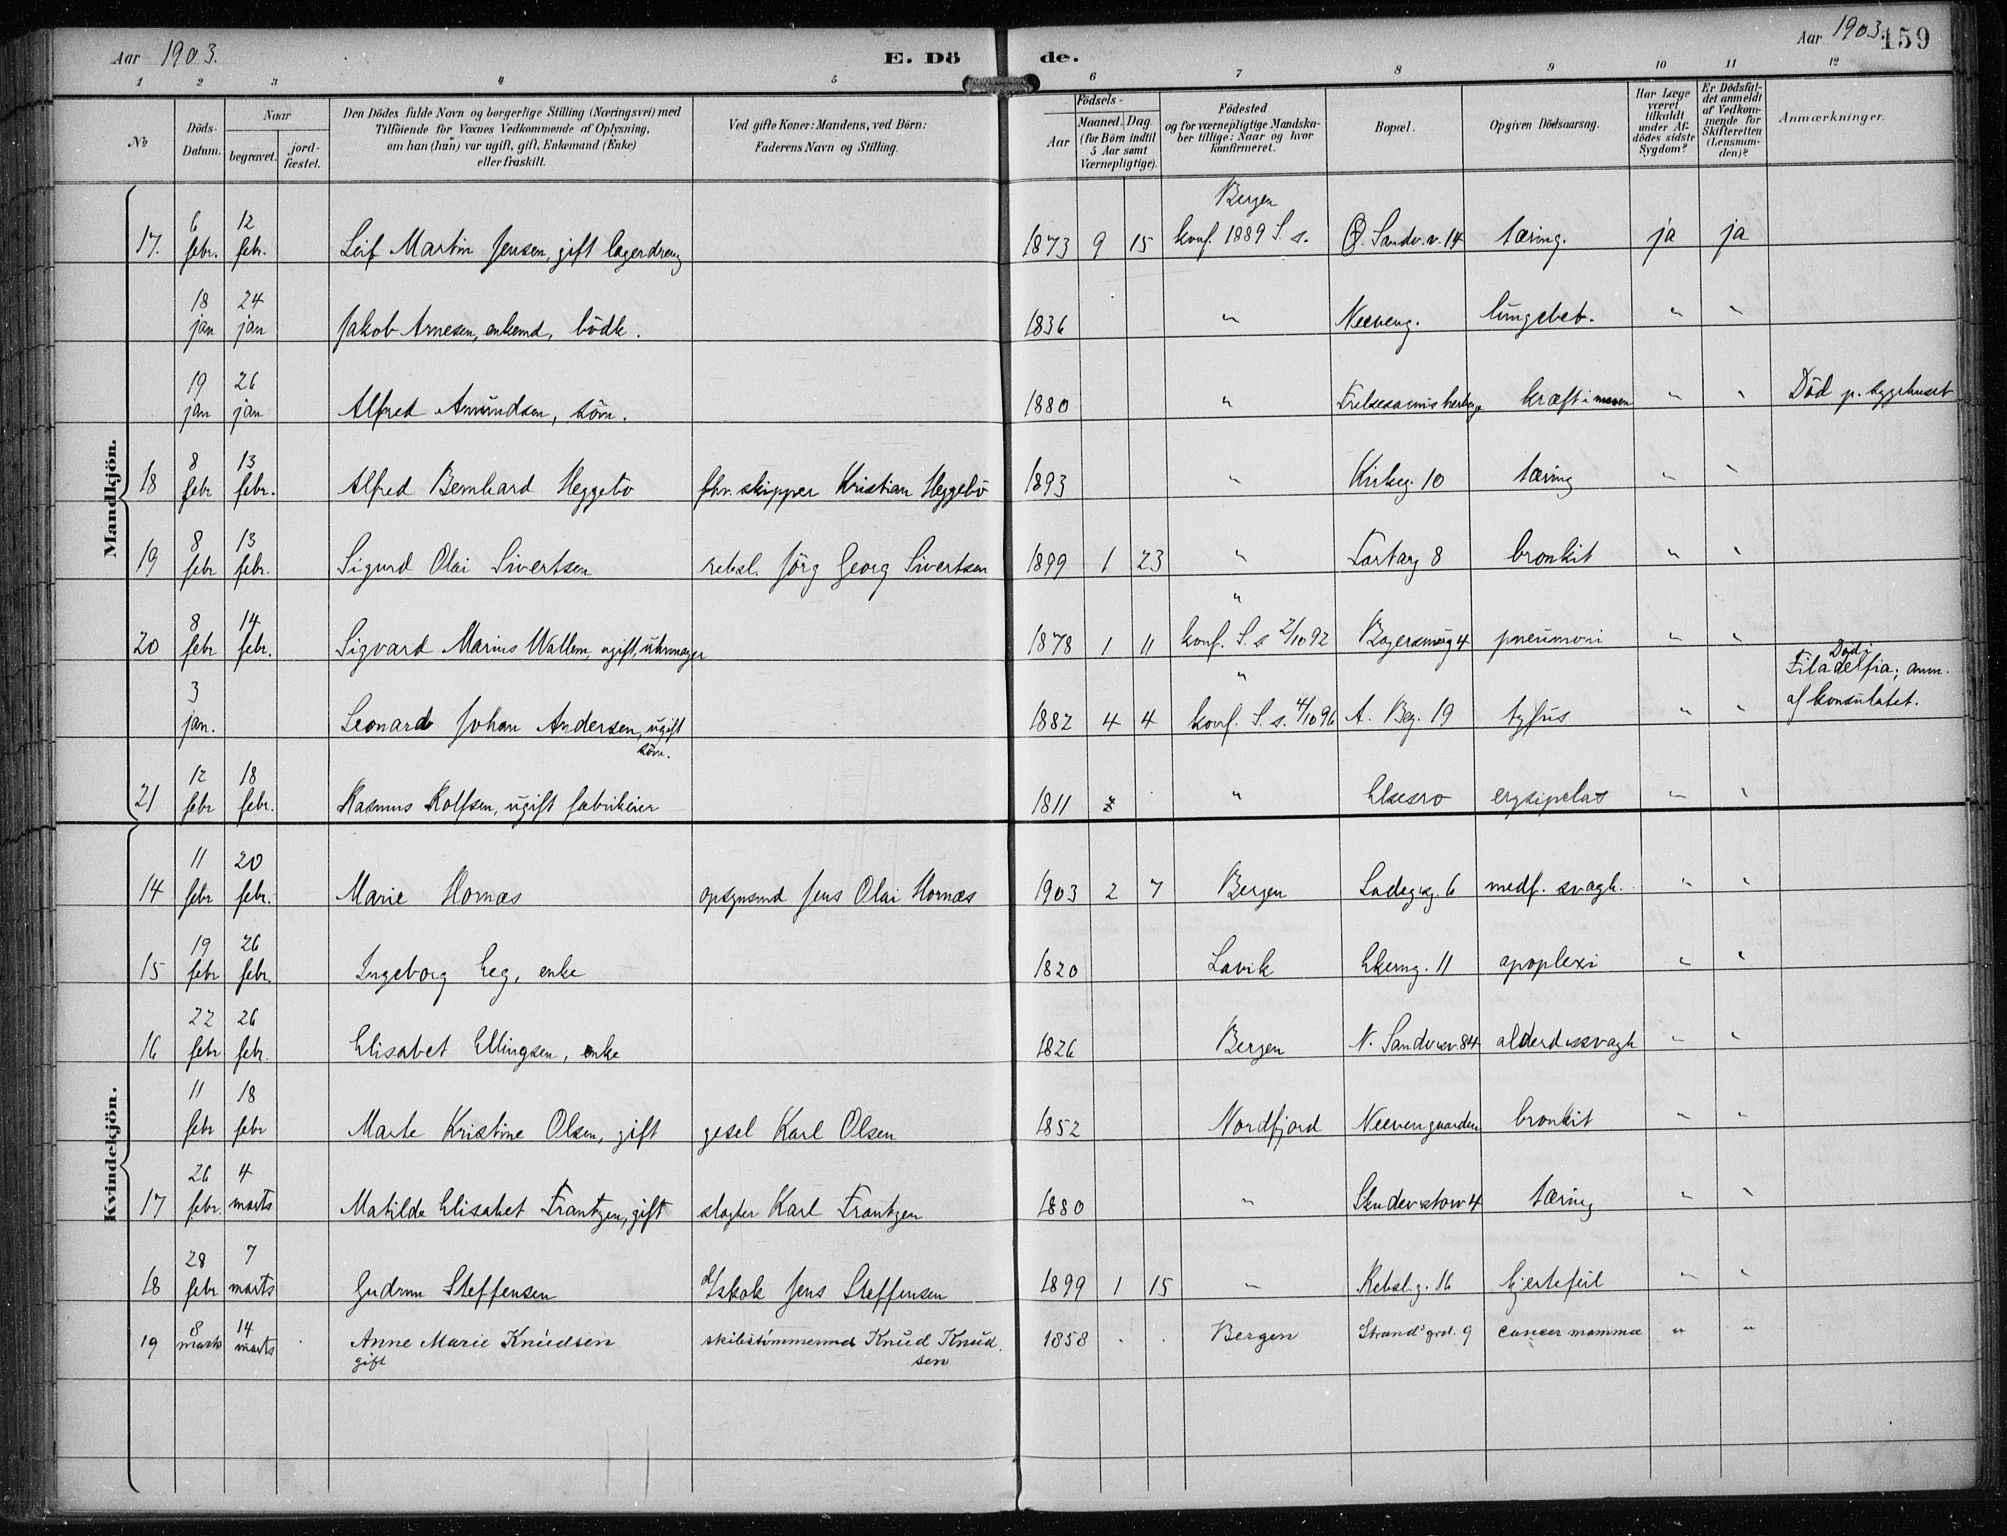 Aar 1903.
E. Dö
de.
Aar 1903.
159
1 2 3 4 5 6 7 8 9 10 11 12
No
Döds-Datum.
Naar
begravet.
jord-fæstet.
Den Dödes fulde Navn og borgerlige Stilling (Næringsvei) med
Tilföiende for Voxnes Vedkommende af Oplysning,
om han (hun) var ugift, gift, Enkemand (Enke)
eller fraskilt.
Ved gifte Koner: Mandens, ved Börn:
Faderens Navn og Stilling.
Födsels-
Aar
Maaned. Dag
(for Börn indtil
5 Aar samt
Værnepligtige).
Födested
og for værnepligtige Mandska-
ber tillige: Naar og hvor
Konfirmeret.
Bopæl.
Opgiven Dödsaarsag.
Har Læge
været
tilkaldt
under Af-
dödes sidste
Sygdom?
Er Dödsfal-
det anmeldt
af Vedkom-
mende for
Skifteretten
(Lensman-
den)?
Anmærkninger.
Mandkjön.
17. 6 febr. 12 febr. Leif Martin Jensen, gift lagerdreng 1873 9 15 Bergen konf. 1889 S. s. Ø. Sandv.v. 14 tæring. ja ja
18 jan 24 jan Jakob Arnesen, enkemd, bödk. 1836 " Neeveng. lungebet. " "
19 jan 26 jan Alfred Amundsen, søm. 1880 " Frelsesarmis herberge kræft i maven " " Död p. sygehuset
18 8 febr 13 febr. Alfred Bernhard Heggebö fhv. skipper Kristian Heggebö 1893 " Kirkeg. 10 tæring " "
19 8 febr 13 febr. Sigurd Olai Sivertsen rebsl. Jörg Georg Sivertsen 1899 1 23 " 8 bronkit " "
20 8 febr 14 febr. Sigvard Marius Wallem, ugift, uhrmager 1878 1 11 " konf. S. s 2/10 92 4 pneumoni " "
3 jan. Leonard Johan Andersen, ugift søm. 1882 4 4 " konf. S. s. 4/10 96 A. Beg. 19 tyfus " " Död i Filadelfia; anm. af konsulatet.
21 12 febr 18 febr. Rasmus Rolfsen, ugift fabrikeier 1811 " Elsesro erysipelas " "
Kvindekjön.
14 11 febr 20 febr. Marie Hornæs opsynsmd Jens Olai Hornæs 1903 2 7 Bergen Ladegsg 6 medf. svagh. " "
15 19 febr 26 febr. Ingeborg Eeg, enke 1820 Lavik Ekerng. 11 apoplexi " "
16 22 febr 26 febr. Elisabet Ellingsen, enke 1826 Bergen N. Sandvisv. 84 alderdssvagh " "
11 febr 18 febr Marte Kristine Olsen, gift gesel Karl Olsen 1852 Nordfjord Neevengaarden bronkit " "
17 26 febr. 4 marts Matilde Elisabet Frantzen, gift slagter Karl Frantzen 1880 " 4 tæring " "
18 28 febr 7 marts Gudrun Steffensen Jens Steffensen 1899 1 15 " Rebsl.g. 16 hjertefeil " "
19 8 marts 14 marts Anne Marie Knudsen gift skibstömmermd Knud Knud sen 1858 . . Bergen Strandsgrd. 9 cancer mammae " "